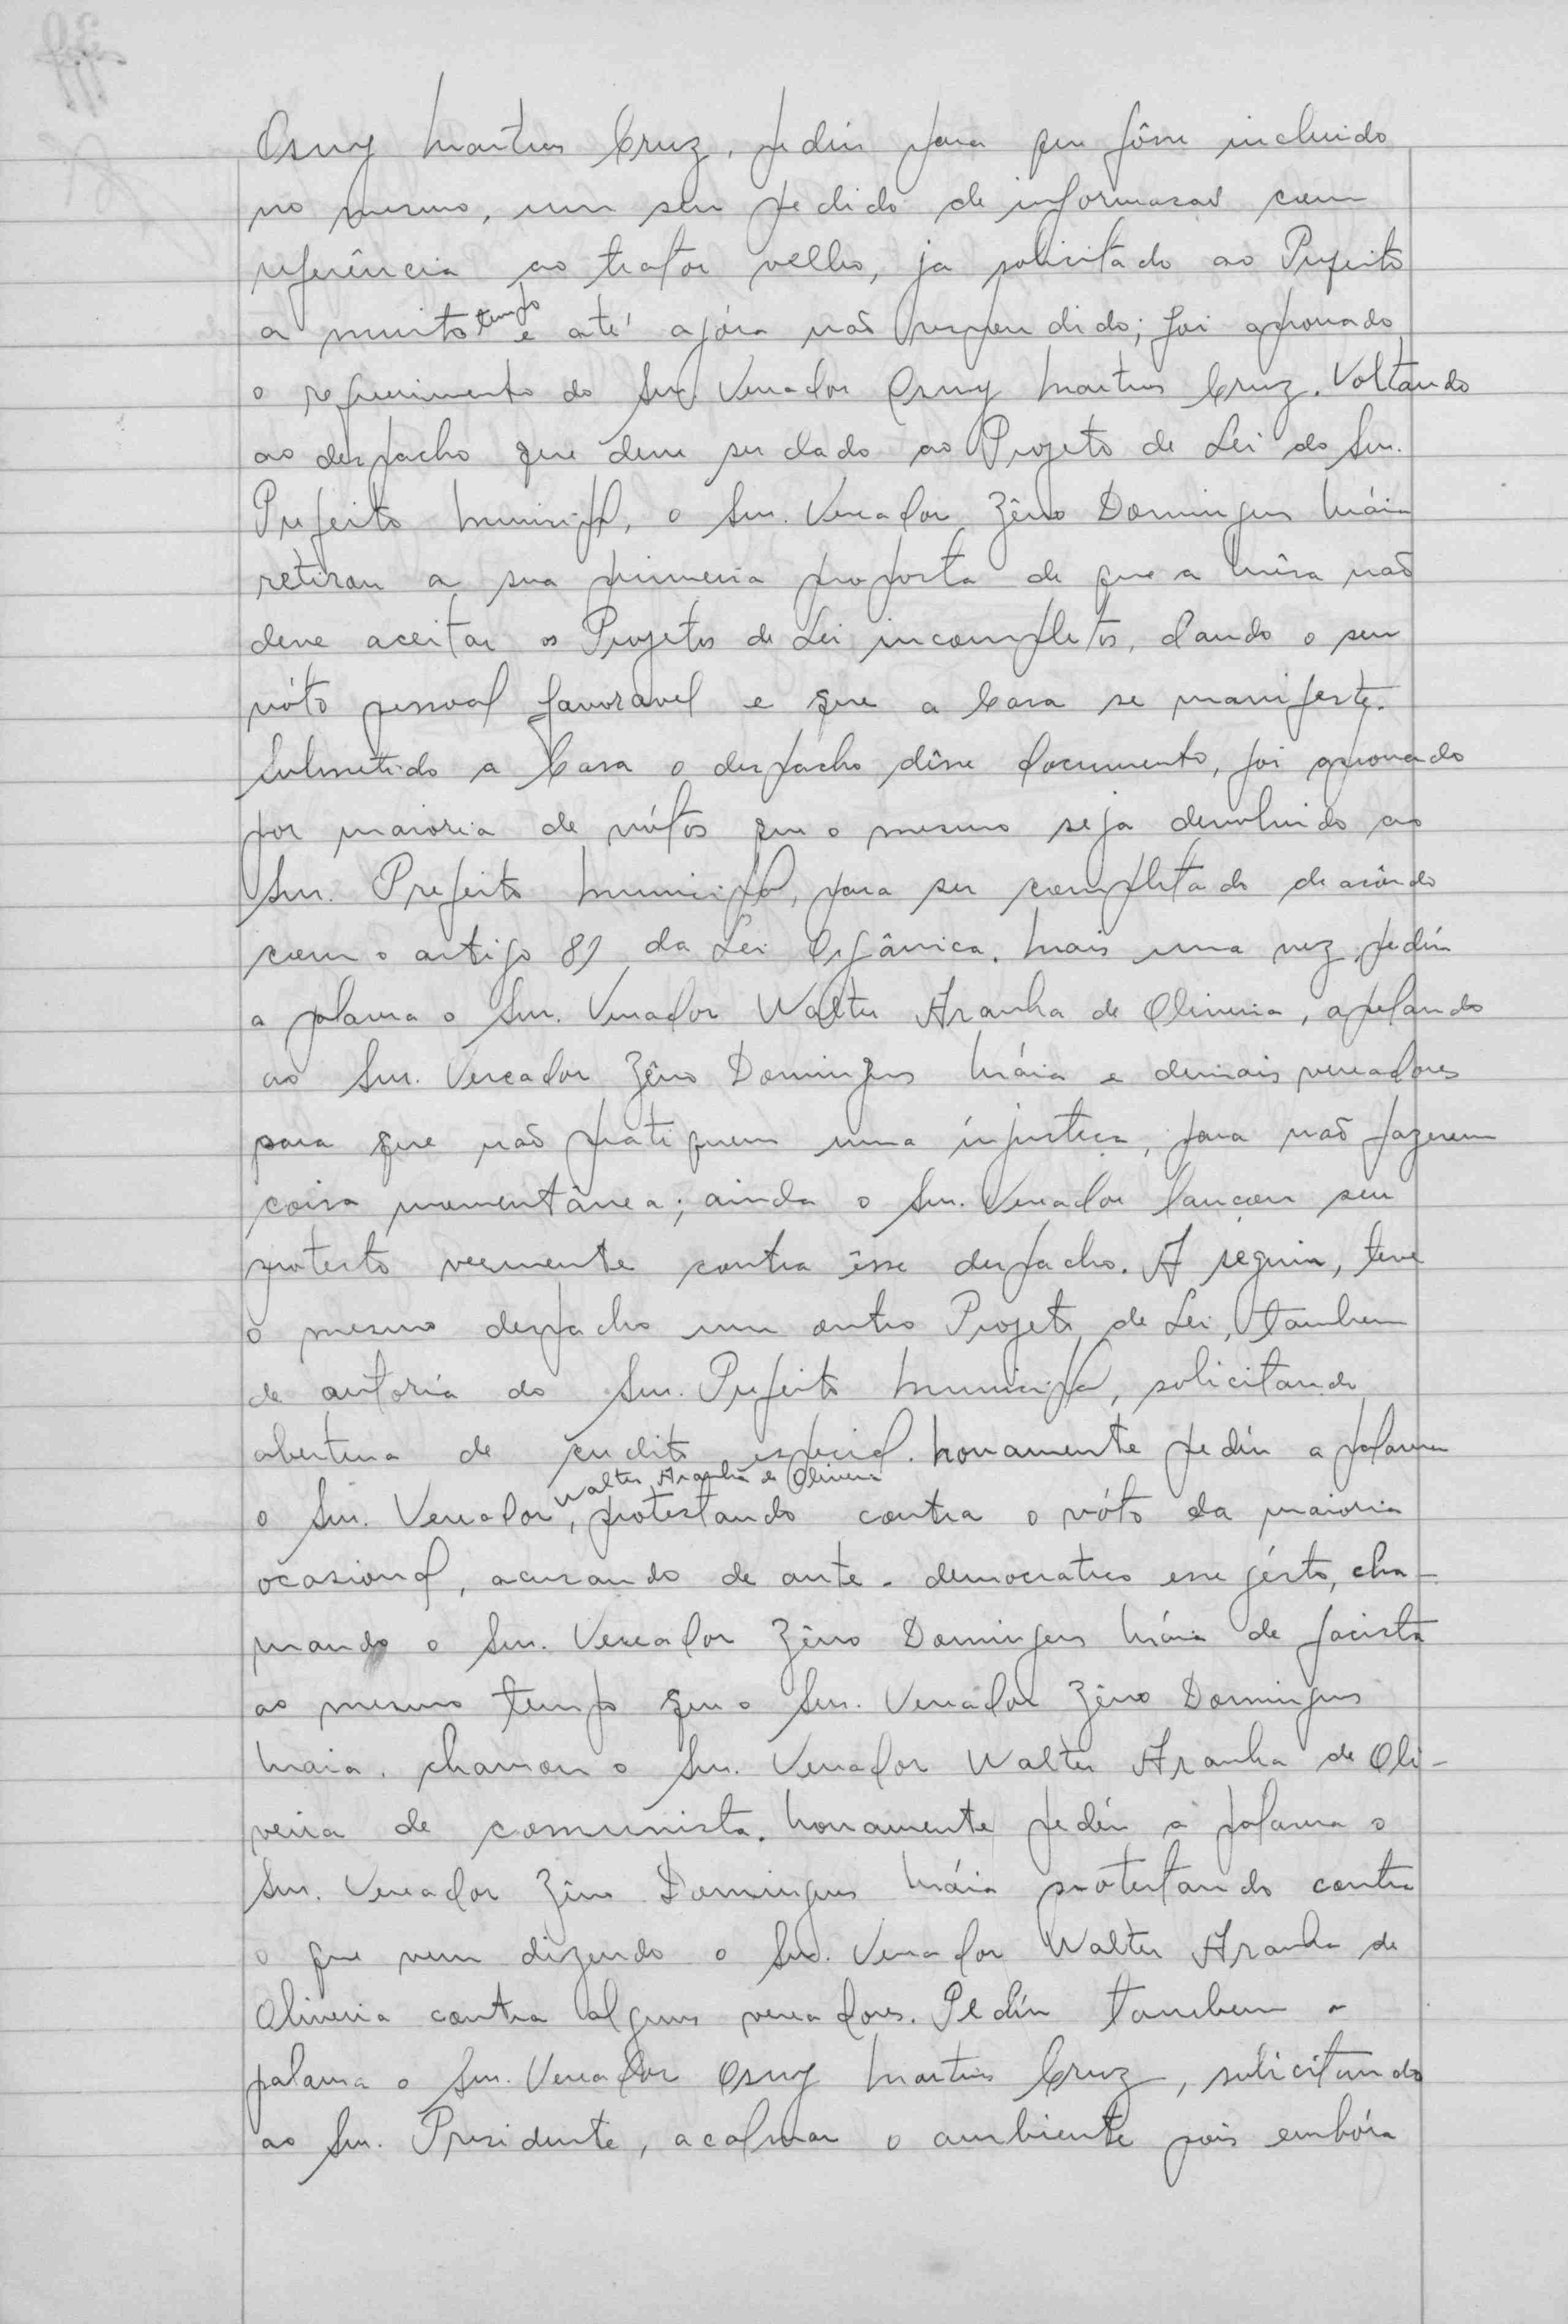 Osny Martins Cruz, pedíu para que fôsse incluido
no mesmo, um seu pedido de informasão com
referência ao trator velho, ja solicitado ao Prefeito
a muito tempo e até agóra não respondido; foi aprovado
o requerimento do Snr. Vereador Osny Martins Cruz. Voltando
ao despacho que deve ser dado ao Projeto de Lei do Snr.
Prefeito Municipal, o Snr. Vereador Zêno Domingues Máia
retirou a sua primeira proposta de que a Mêsa não
deve aceitar os Projetos de Lei incompletos, dando o seu
vóto pessoal favoravel e que a Casa se manifeste.
Submetido a Casa o despacho dêsse documento, foi aprovado
por maioria de vótos que o mesmo seja devolvido ao
Snr. Prefeito Municipal, para ser completado de acôrdo
com o artigo 89 da Lei Orgânica. Mais uma vez, pedíu
a palavra o Snr. Vereador Walter Aranha de Oliveira, apelando
ao Snr. Vereador Zêno Domingues Máia e demais vereadores
para que não pratiquem uma injustiça, para não fazerem
coisa momentânea; ainda o Snr. Vereador lançou seu
protesto veemente contra êsse despacho. A seguir, teve
o mesmo despacho um outro Projeto de Lei, tambem
de autoria do Snr. Prefeito Municipal, solicitando
abertura de credito especial. Novamente pedíu a palavra
o Snr. Vereador, Walter Aranha de Oliveira protestando contra o vóto da maioria
ocasional, acusando de ante-democratico esse gésto, cha-
mando o Snr. Vereador Zêno Domingues Máia de facista
ao mesmo tempo que o Snr. Vereador Zêno Domingues
Maia, chamou o Snr. Vereador Walter Aranha de Oli-
veira de comunista. Novamente pedíu a palavra o
Snr. Vereador Zêno Domingues Máia protestando contra
o que vem dizendo o Snr. Vereador Walter Aranha de
Oliveira contra alguns vereadores. Pedíu tambem a
palavra o Snr. Vereador Osny Martins Cruz, solicitando
ao Snr. Presidente, acalmar o ambiente pois embóra